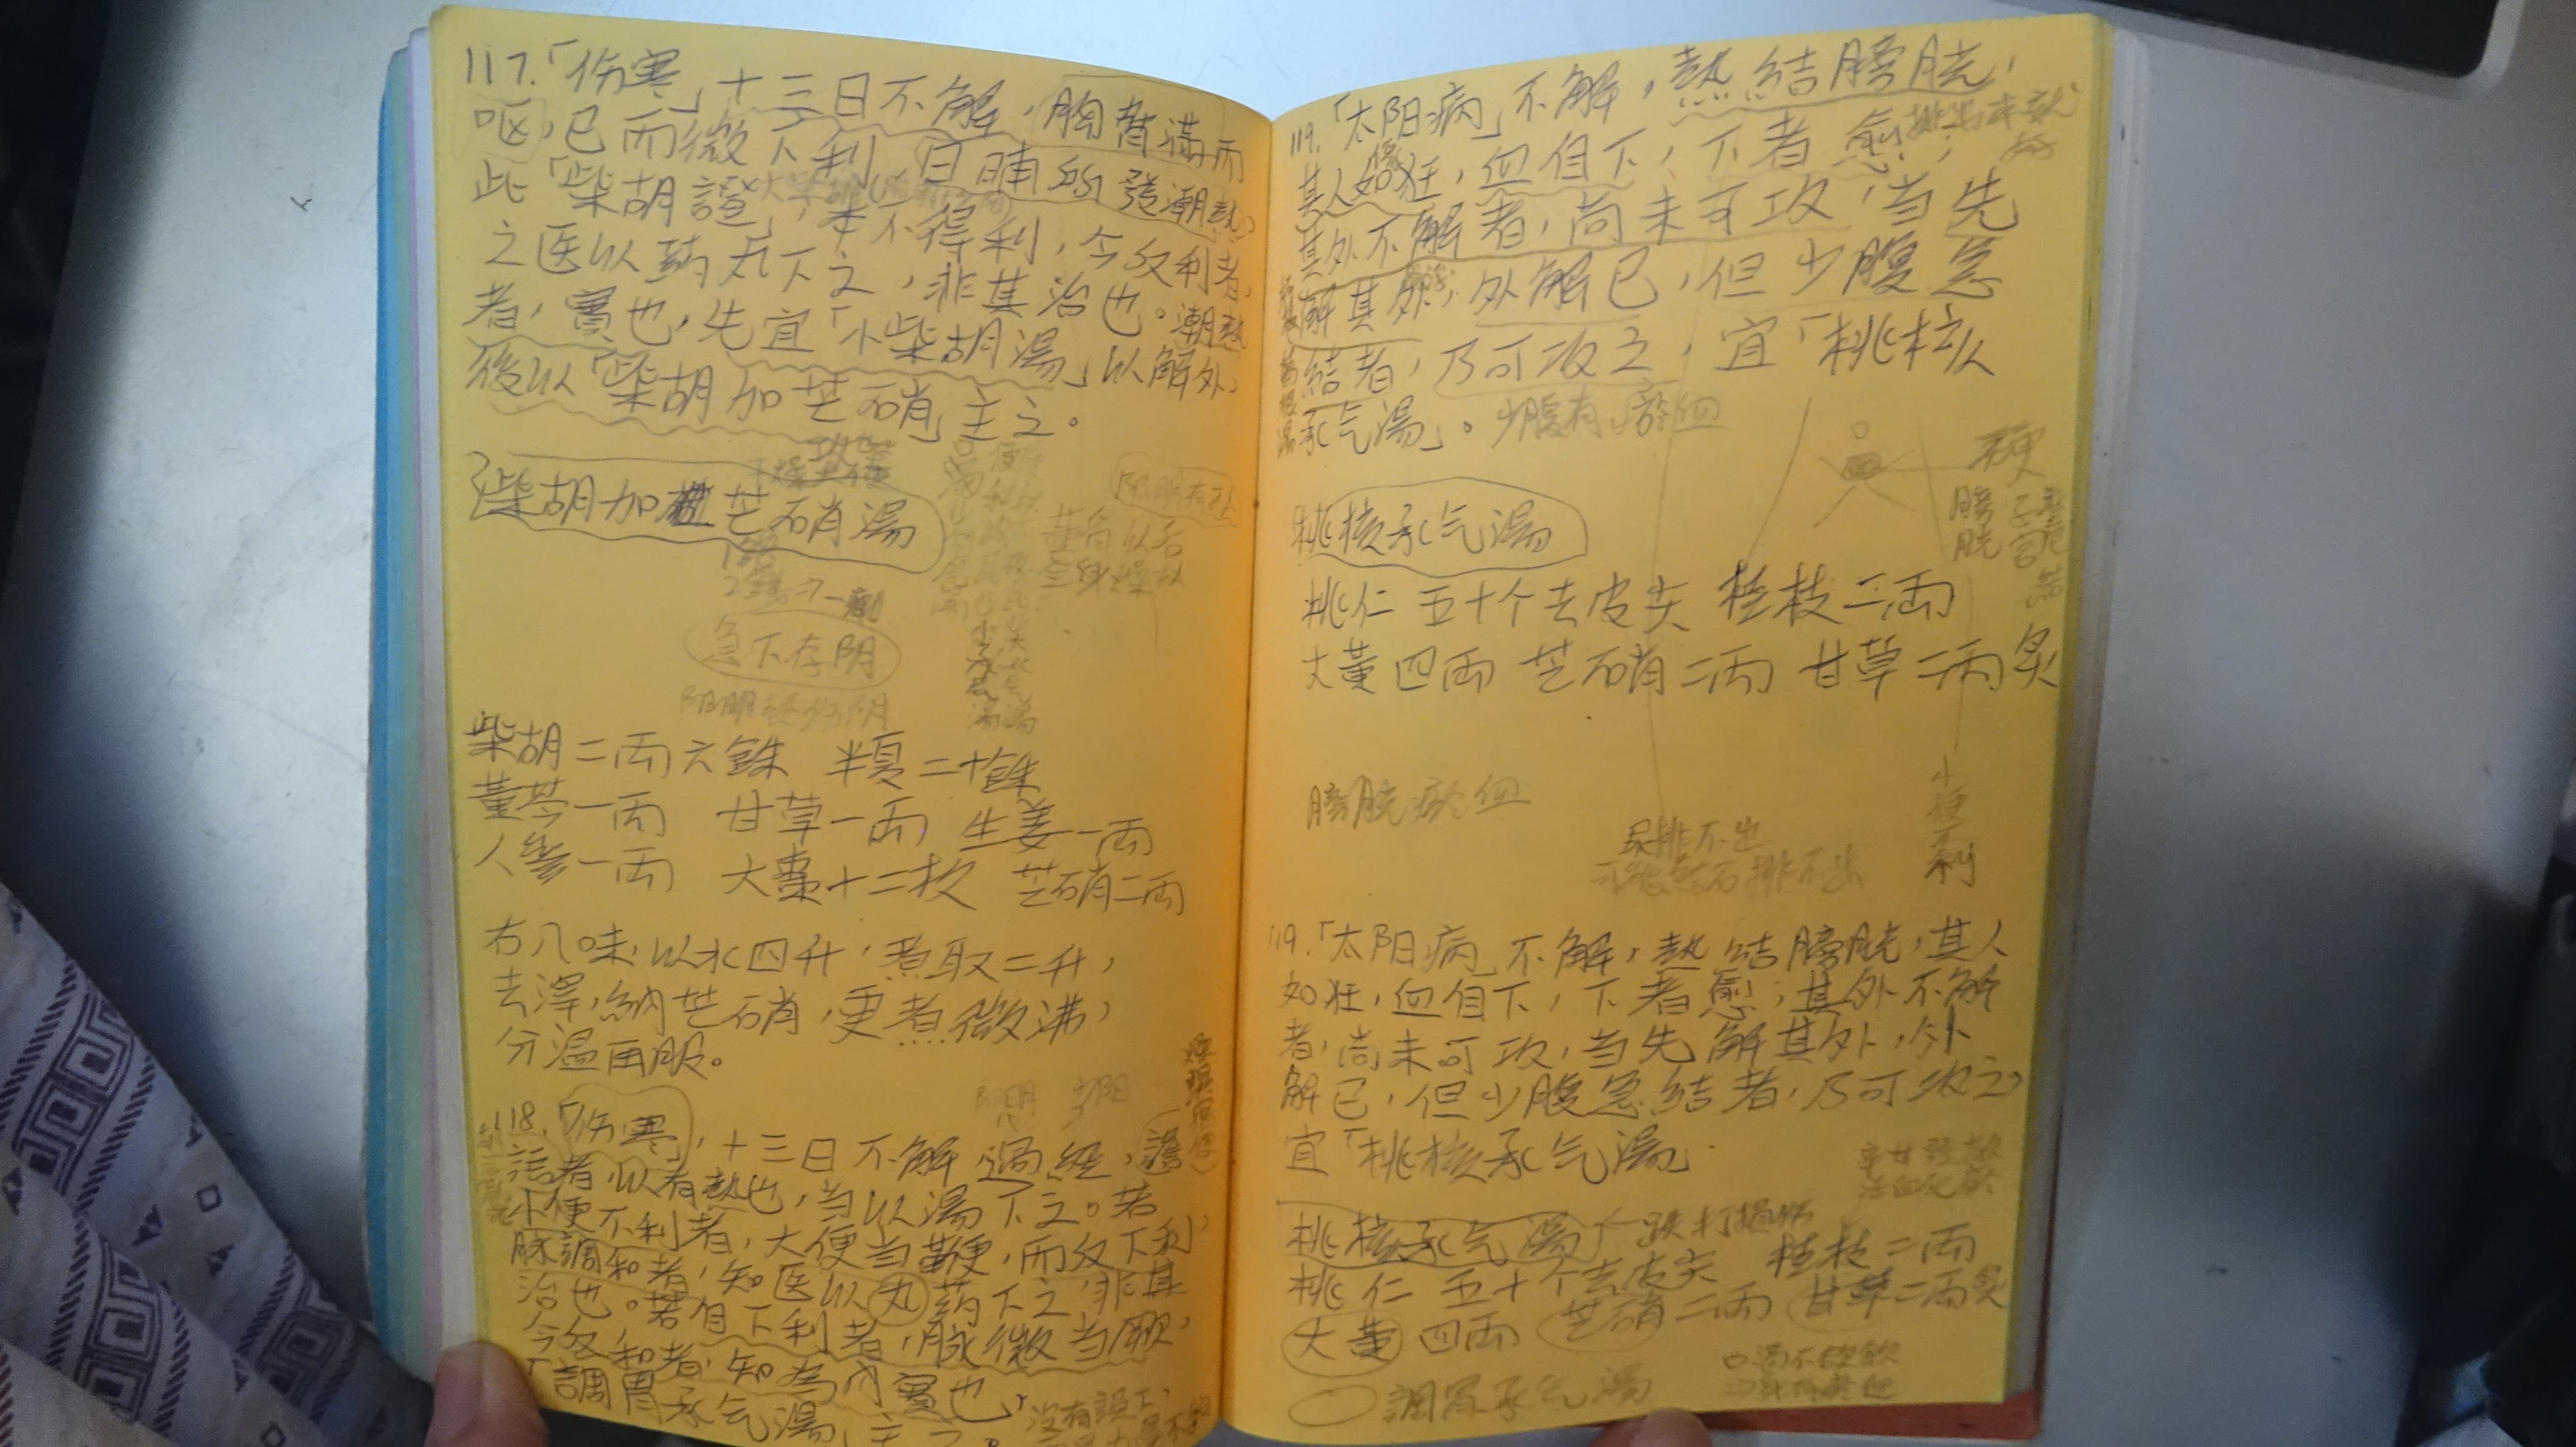 117.「伤寒」十三日不解，胸脅滿而
呕，已而微下利，日晡所發潮熱，
此「柴胡證」，本不得利，今反利者，
之医以药丸下之，非其治也。潮熱
者，實也，先宜「小柴胡湯」以解外，
後以「柴胡加芒硝」主之。
柴胡加芒硝湯
急下存阴
阳明熱伤阴
柴胡二両六銖 半夏二十銖
黄芩一両 甘草一両 生姜一両
人參一両 大棗十二枚 芒硝二両
右八味，以水四升，煮取二升，
去滓，納芒硝，更煮微沸，
分温再服。
阳明 少阳
118.「伤寒」，十三日不解，過經，譫
語者，以有熱也，当以湯下之。若
小便不利者，大便当鞕，而反下利，
脉調和者，知医以丸药下之，非其
治也。若自下利者，脉微当厥，
今反和者，知為內實也，
「調胃承气湯」主之。
没有誤下，
119.「太阳病」不解，熱結膀胱，
其人如狂，血自下，下者愈，
其外不解者，尚未可攻，当先
解其外，外解已，但少腹急
結者，乃可攻之，宜「桃核
承气湯」。少腹有瘀血
桃核承气湯
硬
膀胱
子宮
桃仁 五十个去皮尖 桂枝二両
大黄四両 芒硝二両 甘草二両炙
膀胱瘀血
尿排不出
可能結石排不出
小便不利
119.「太阳病」不解，熱結膀胱，其人
如狂，血自下，下者愈；其外不解
者，尚未可攻，当先解其外，外
解已，但少腹急結者，乃可攻之，
宜「桃核承气湯」.
桃核承气湯 ← 跌打損伤
桃仁 五十个去皮尖 桂枝二両
大黄四両 芒硝二両 甘草二両炙
調胃承气湯